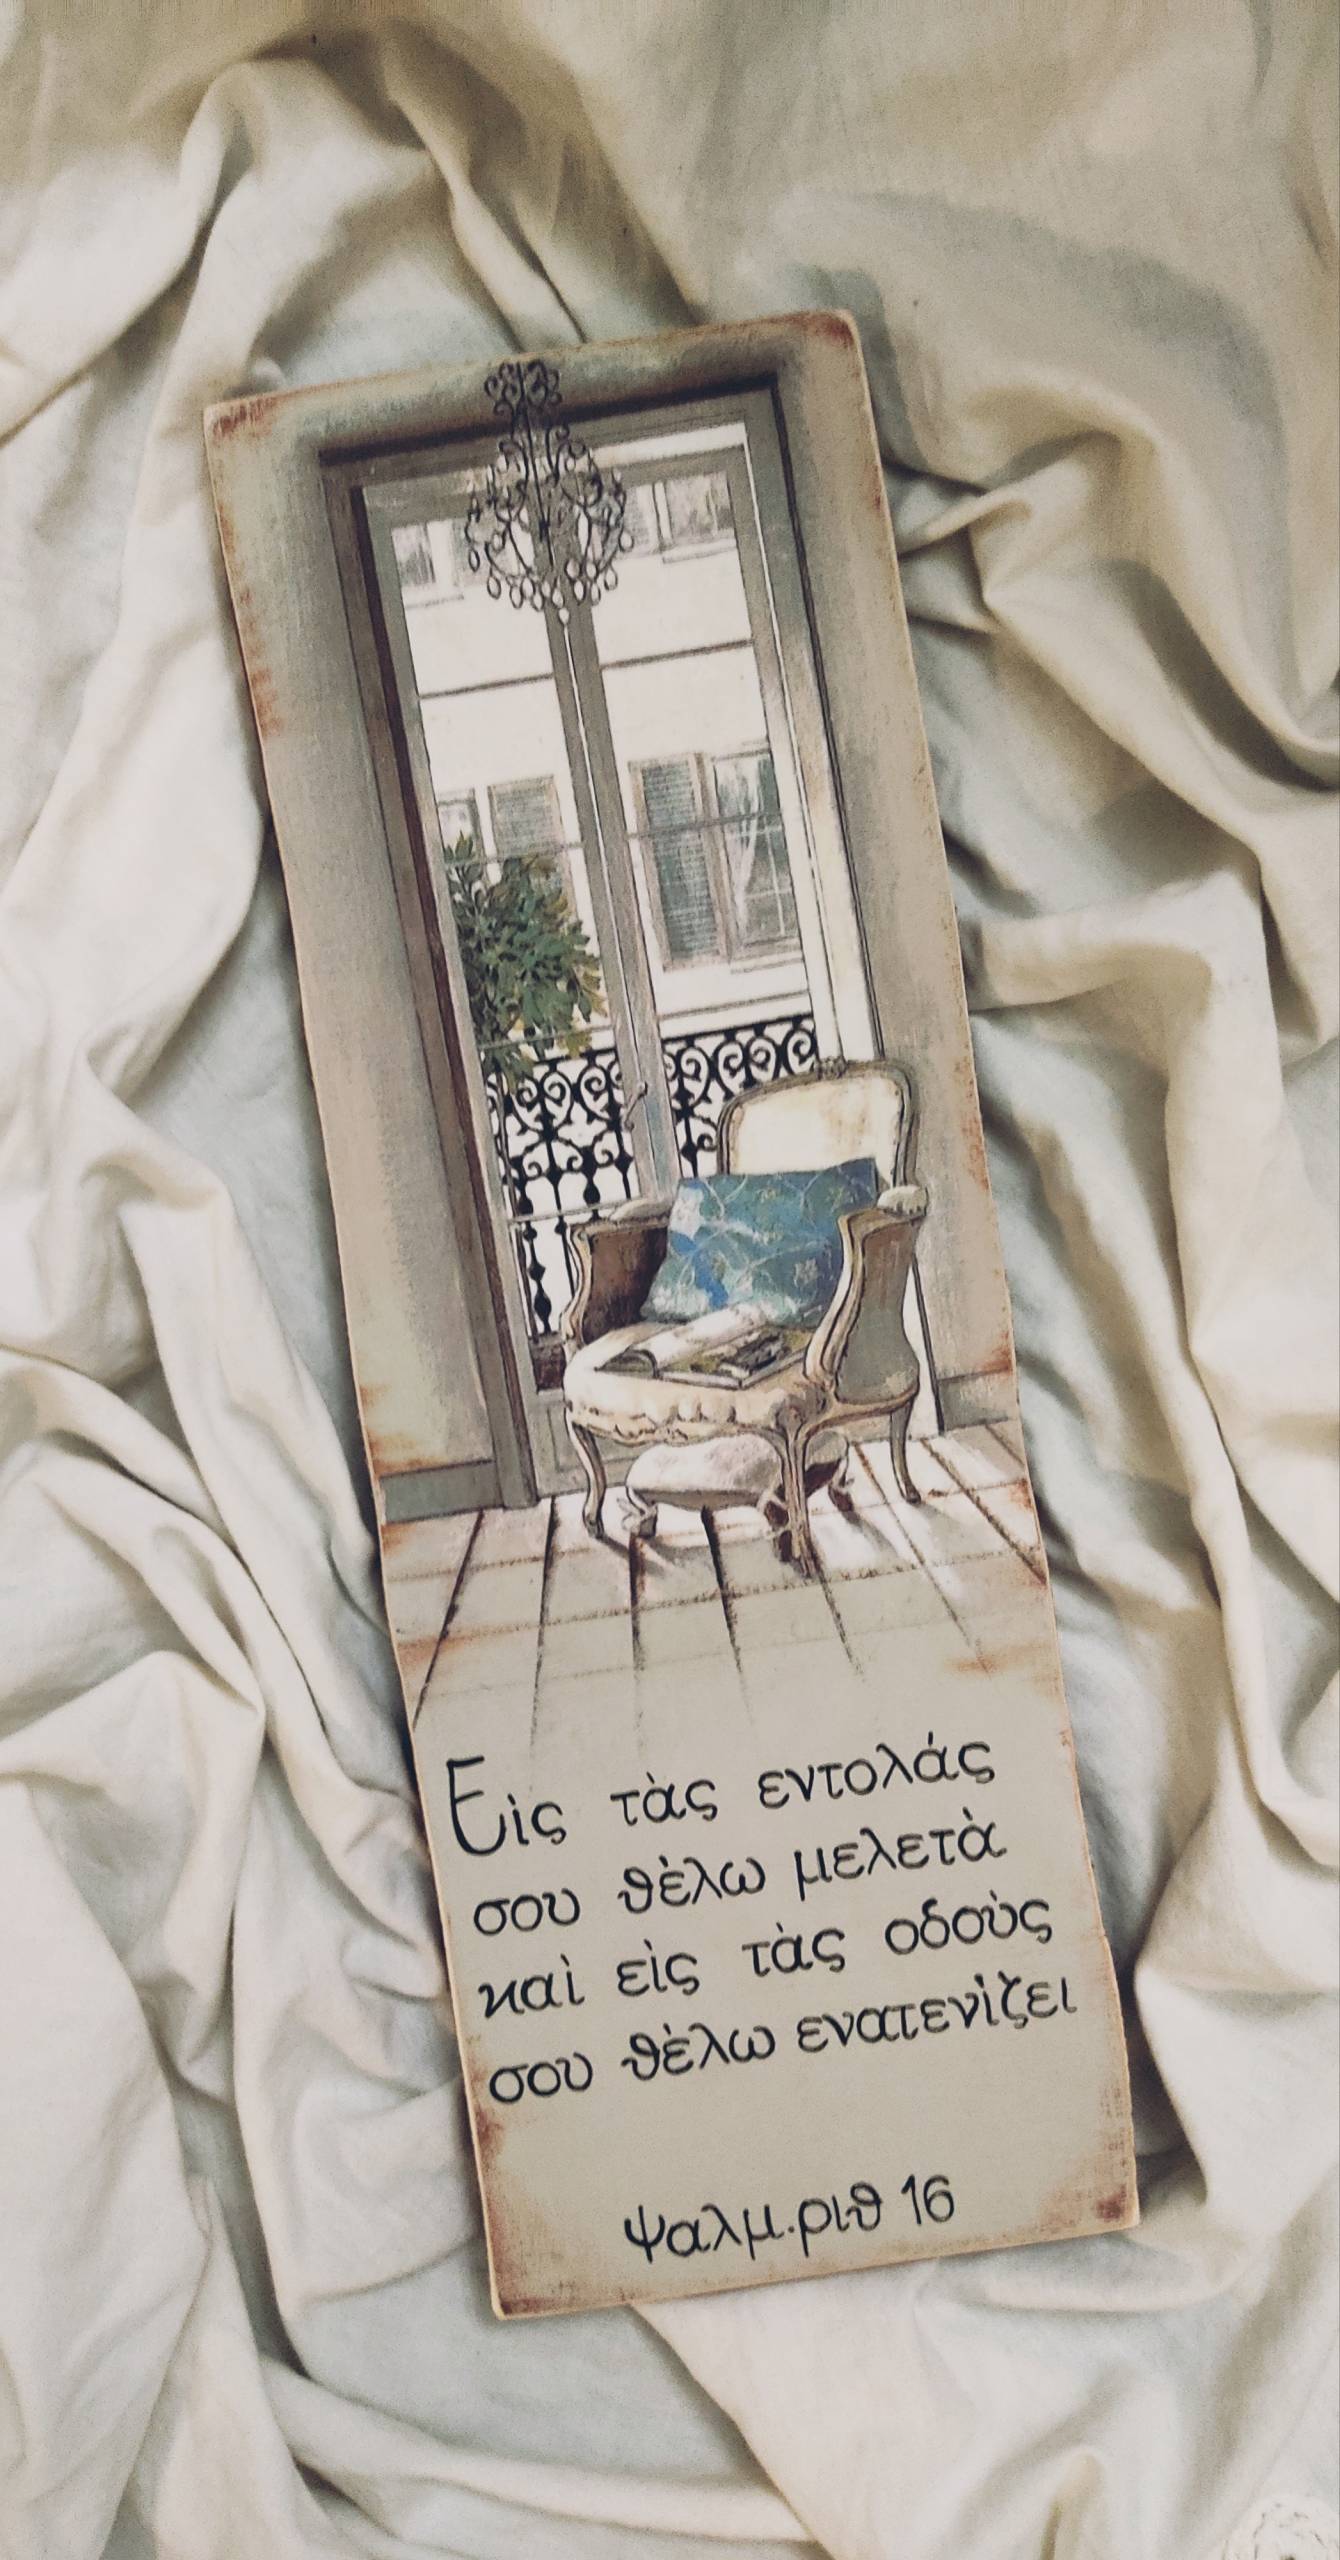 Εὶς τὰς εντολάς
σου θὲλω μελετὰ
καὶ εὶς τὰς οδοὺς
σου θὲλω ενατενὶζει
ψαλμ.ριθ 16